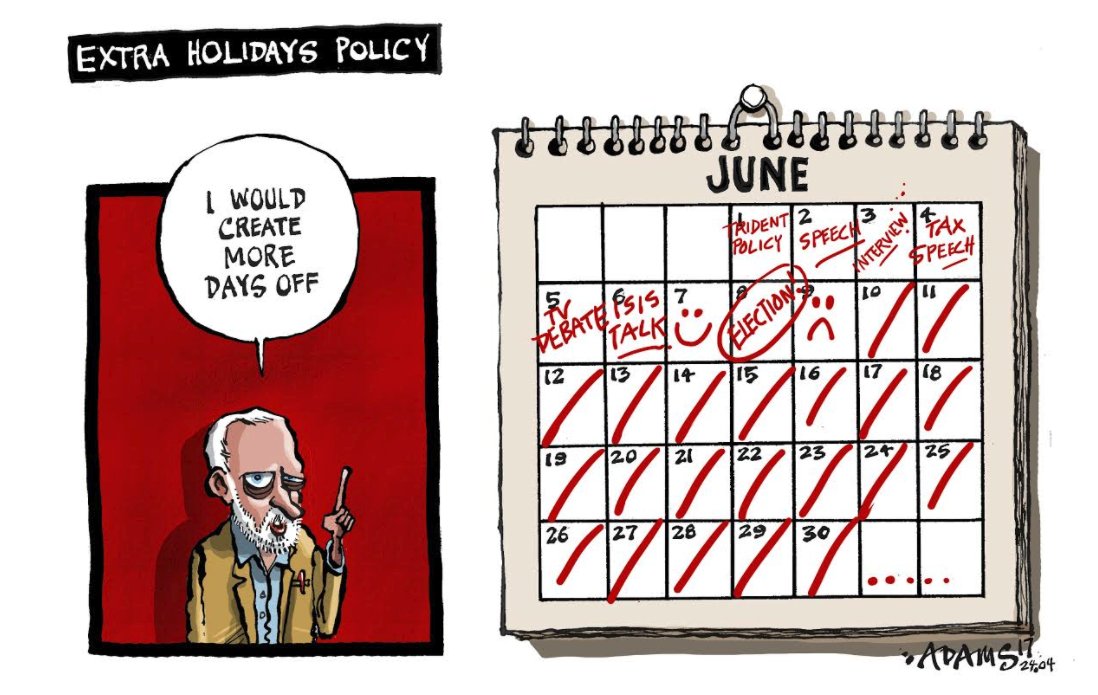 EXTRA HOLIDAYS POLICY
I WOULD
CREATE
MORE
DAYS OFF
JUNE
1 2 3 4
TRIDENT
POLICY
SPEECH
INTERVIEW
TAX
SPEECH
5 6 7 8 9 10 11
TV
DEBATE
ISIS
TALK
ELECTION!
12 13 14 15 16 17 18
19 20 21 22 23 24 25
26 27 28 29 30
ADAMS 17
24.04